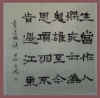 生當作人
傑死亦為
鬼雄至今
思項羽不
肯過江東